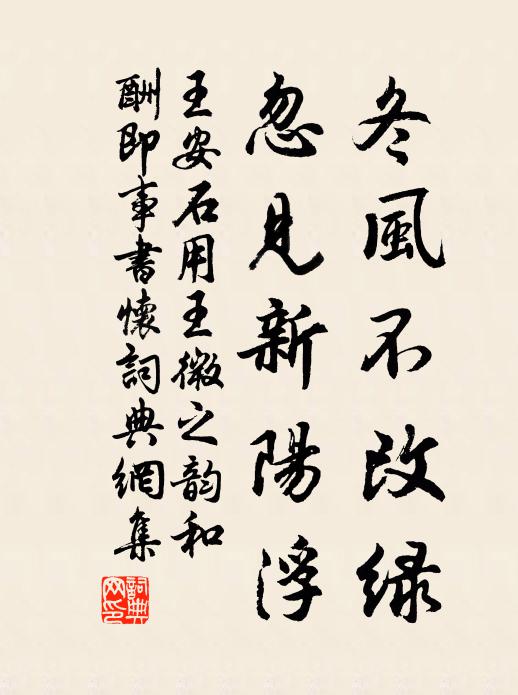 冬風不改綠
忽見新陽浮
王安石用王徽之韵和
酬即事書懷詞典網集
詞典網印